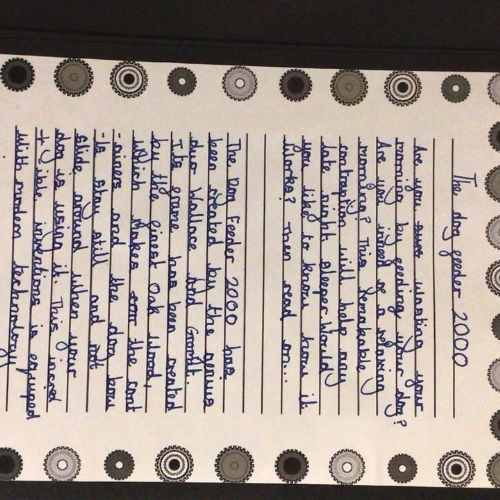 The dog feeder 2000
Are you wasting your
morning by feeding your dog?
Are you in need of a relaxing
morning? This remarkable
contraption will help any
late night sleeper. Would
you like to know how it
Works? Then read on...
The Dog Feeder 2000 has
been created by the genius
duo Wallace and Gromit.
Its frame has been created
by the finest Oak Wood,
Which makes the cont
-ainers and the dog bow
-ls stay still and not
slide around when your
dog is using it. This incred
-ible inventions is equiped
With modern technology